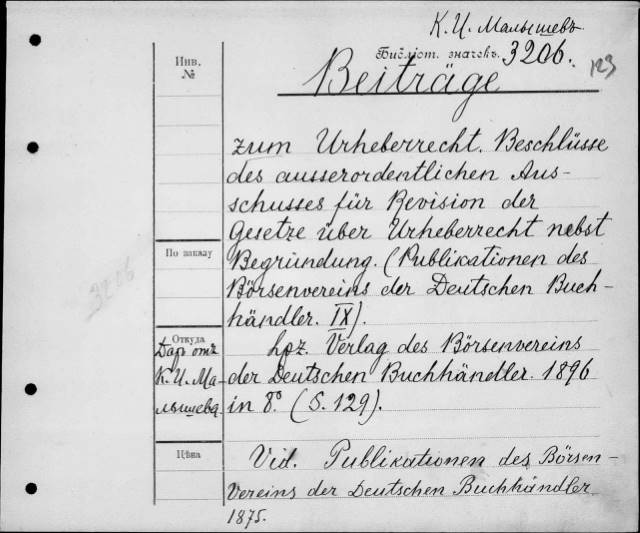 К. И. Малышевъ
Инв.
№
Библіот. значекъ. 3206.
123
Beiträge
zum Urheberrecht. Beschlüsse
des ausserordentlichen Aus-
schusses für Revision der
Gesetze über Urheberrecht nebst
По заказу
Begründung. (Publikationen des
3206
Börsenvereins der Deutschen Buch-
händler. IX).
Откуда
Даръ отъ
К. И. Ма-
лышева
Lpz. Verlag des Börsenvereins
der Deutschen Buchhändler. 1896
in 8.° (S. 129).
Цѣна
Vid. Publikationen des Börsen-
vereins der Deutschen Buchhändler
1875.